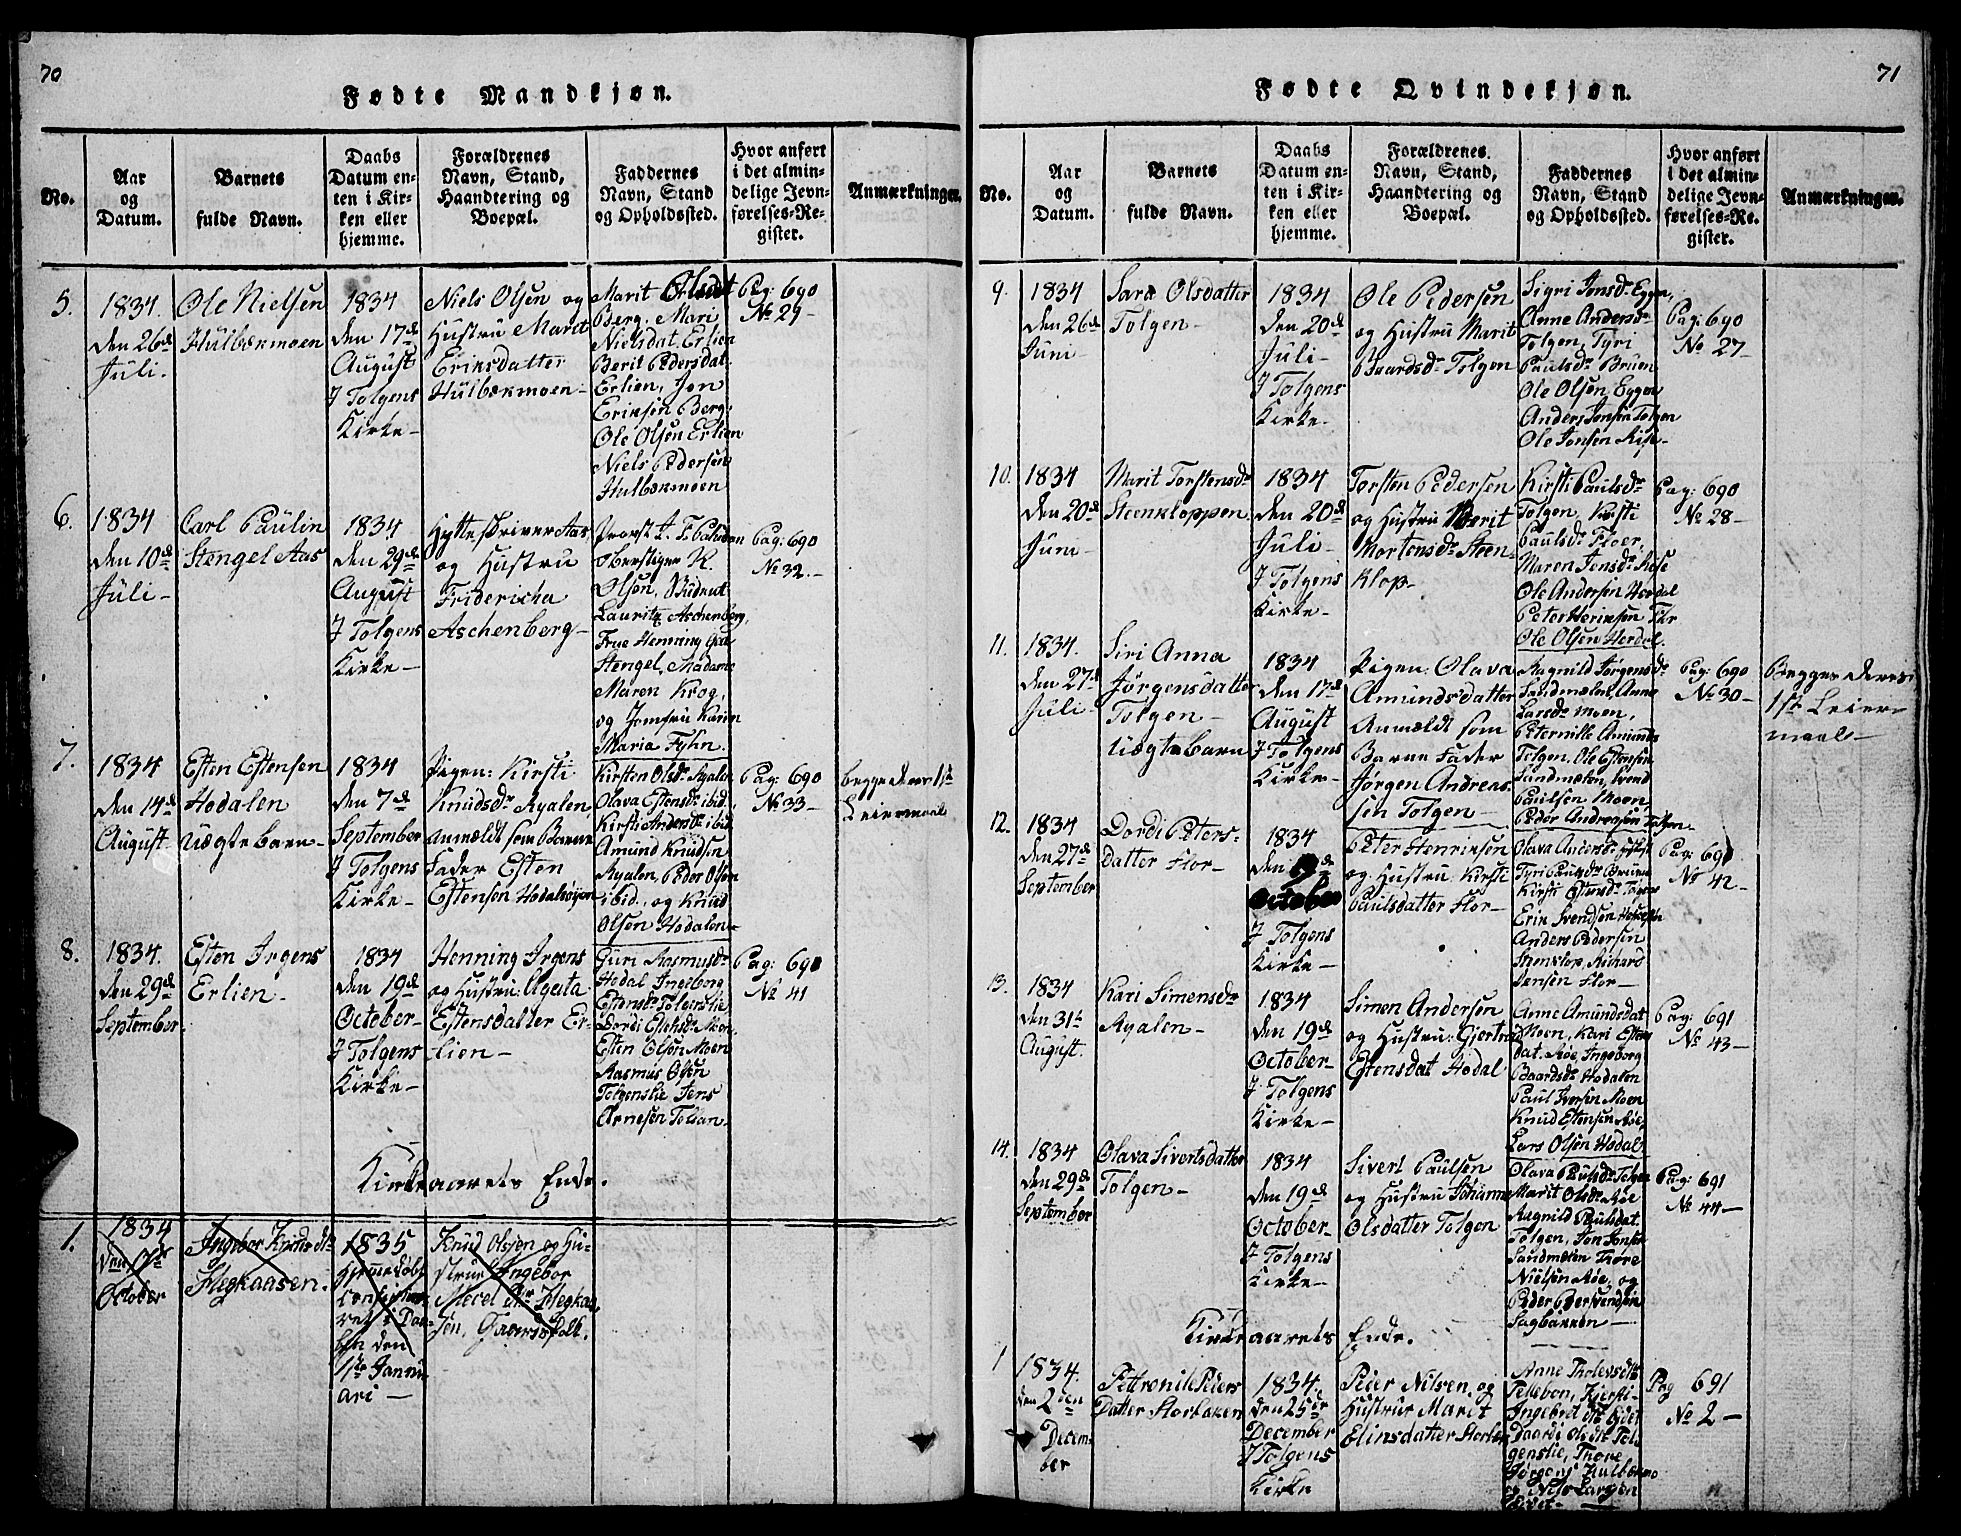 70
Fødte Mandkjøn.
No.
Aar
og
Datum.
Barnets
fulde Navn.
Daabs
Datum en-
ten i Kir-
ken eller
hjemme.
Forældrenes
Navn, Stand,
Haandtering og
Boepæl.
Faddernes
Navn, Stand
og Opholdssted.
Hvor anført
i det almin-
delige Jevn-
førelses-Re-
gister.
Anmærkninger.
5.
1834.
den 26de
Juli.
Ole Nielsen
Hulbækmoen
1834
den 17de
August
I Tolgens
Kirke-
Niels Olsen og
Hustru Marit
Eriksdatter
Hulbækmoen-
Marit Olsdat
Berg. Mari
Nielsdat. Erlien
Berit Pedersdat.
Erlien, Jon
Eriksen Berg.
Ole Olsen Erlien
Niels Pedersen
Hulbækmoen
Pag: 690
No 29-
6.
1834
den 10de
Juli-
Carl Paulin
Stengel Aas
1834
den 29de
August
I Tolgens
Kirke-
Hytteskriver Aas
og Hustru
Fridericha
Aschenberg-
Provst
Oberstiger R.
Olsen, Student
Lauritz Aschenberg,
Frue Henning
Stengel, Madame
Maren Krog,
og Jomfru Karen
Maria Fyhn.
Pag: 690
No 32.-
7.
1834
den 14de
August
Esten Estensen
Hodalen
Uægte barn-
1834
den 7de
September
I Tolgens
Kirke-
Pigen: Kirsti
Knudsdr Ryalen,
anmældt som Barnets
Fader Esten
Estensen Hodalsøyen
Kirsten Olsdr Ryalen
Olava Estensdr ibid.,
Kirsti Andersdr ibid
Amund Knudsen
Ryalen, Peder Olsen
ibid., og Knud
Olsen Hodalen-
Pag: 690
No 33-
begge deres 1ste
Leiermaal
8.
1834.
den 29de
September.
Esten Irgens
Erlien-
1834
den 19de
October-
I Tolgens
Kirke-
Henning Irgens
og Hustru: Agata
Estensdatter Er-
lien-
Guri Rasmusdr
Hodal Ingeborg
Estensdr Tolgenslie
Dordi Estensdr Moen
Esten Olsen Moen
Rasmus Olsen
Tolgenslie Jens
Arnesen Tollan-
Pag: 691
No 41
Kirkeaarets Ende.
1.
1834
October
Ingebor Knudsdtr
Hegkaasen.
1835
Hjemmedøbt
ret i Daa-
ben den
1ste Janu-
ari-
Knud Olssen og Hu-
strue Ingebor
Hegkaa-
sen, Gaardsfolk.
71
Fødte Qvindekjøn.
No.
Aar
og
Datum.
Barnets
fulde Navn.
Daabs
Datum en-
ten i Kir-
ken eller
hjemme.
Forældrenes.
Navn, Stand,
Haandtering og
Boepæl.
Faddernes
Navn, Stand
og Opholdssted.
Hvor anført
i det almin-
delige Jevn-
førelses-Re-
gister.
Anmærkninger.
9.
1834
den 26de
Juni-
Sara Olsdatter
Tolgen-
1834
den 20de
Juli-
I Tolgens
Kirke-
Ole Pedersen
og Hustru Marit
Baardsdr Tolgen
Sigri Jonsdr Eggen,
Anne Andersdr
Tolgen, Tyri
Paulsdr Bruen
Ole Olsen Eggen
Anders Jonsen Tolgen
Ole Jonsen Rise-
Pag: 690
No 27-
10.
1834
den 20de
Juni-
Marit Torstensdr
Steenkloppen
1834
den 20de
Juli-
I Tolgens
Kirke-
Torsten Pedersen
og Hustru Berit
Mortensdr Steen-
klop-
Kirsti Paulsdr
Tolgen, Kirsti
Paulsdr Floer,
Maren Jensdr Riise
Ole Andersen Hodal
Peter Henriksen Flor
Ole Olsen Hodal.
Pag: 690
No 28-
11.
1834.
den 27de
Juli-
Siri Anna
Jørgensdatter
Tolgen-
Uægte barn
1834
den 17de
August
I Tolgens
Kirke-
Pigen: Olava
Amundsdatter
Anmældt som
Barne Fader
Jørgen Andreas-
sen Tolgen-
Ragnild Jørgensdr
Sandmælen, Anne
Larsdr Moen,
Peternille Amunds
Tolgen, Ole Estensen
Sandmælen, Svend
Paulsen Moen,
Peder Andreasen Tolgen-
Pag: 690
No 30-
Begges deres
1ste Leier-
maal-
12.
1834
den 27de
September
Dordi Peters-
datter Flor-
1834
den
October
I Tolgens
Kirke-
Peter Henriksen
og Hustru: Kirsti
Paulsdatter Flor-
Olava Andersdr
Tyri Paulsdr Bruen
Kirsti Estensdr Tolgen
Erik Svendsen
Anders Pedersen
Steenklop, Richard
Jensen Flor-
Pag: 691
No 42-
13.
1834
den 31te
August.
Kari Simensdr
Ryalen-
1834
den 19de
October-
I Tolgens
Kirke-
Simen Andersen
og Hustru: Gjertrud
Estensdat Hodal
Anne Amundsdat
Moen, Kari Estens
dat. Røe, Ingeborg
Baardsdr Hodalen
Paul Iversen Moen
Knud Estensen Røe,
Lars Olsen Hodal.
Pag: 691
No 43-
14.
1834
den 29de
September
Olava Sivertsdatter
Tolgen-
1834
den 19de
October-
I Tolgens
Kirke-
Sivert Paulsen
og Hustru Johanna
Olsdatter Tolgen
Olava Paulsdr Tolgen
Marit Olsdr Røe
Ragnild Paulsdat.
Tolgen, Jon Jonsen
Sandmælen Thore
Nielsen Røe, og
Peder Bersvendsen
Sagbakken-
Pag: 691
No 44-
Kirkeaarets Ende.
1
1834.
den 2den
Decem-
ber
Pettronile Peders
Datter Storbakken
1834.
den 25de
December
I Tolgens
Kirke
Peder Nilsen, og
Hustrue Marit
Elinsdatter
Anne
Ingebrd
genslie, Thore
Jørgens Hulbækmo
og Nils Larssen
Pag 691
No 2-